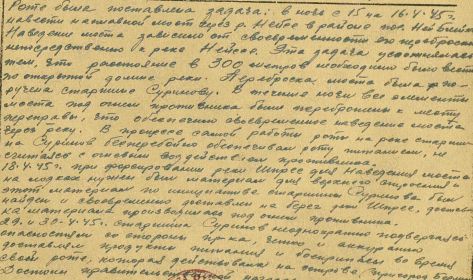 Роте была поставлена задача: в ночь с 15 на 16.4.45г.
навести наплавной мост через р. Нейсе в районе пос.
Наведение моста зависило от своевременности его переброски
непосредственно к реке Нейсе. Эта задача усложнялась
тем, что расстояние в 300 метров необходимо было вести
по открытой долине реки. Переброска моста была по-
ручена старшине Сиринову. В течение ночи все элементы
моста под огнем противника были переброшены к месту
переправы, что обеспечило своевременное наведение моста
через реку. В процессе самой работы роты на реке старши-
на Сиринов бесперебойно обеспечивал роту питанием, не
считаясь с огневым воздействием противника.
18.4.45г. при форсировании реки Шпрее для наведения моста
на лодках нужен был материал для верхнего строения и
этот материал по инициативе старшины Сиринова был
найден и своевременно доставлен на берег реки Шпрее, доставка
материала производилась под огнем противника.
29 и 30.4.45г. старшина Сиринов неоднократно подвергаясь
опасностям со стороны пр-ка, четко и аккуратно
доставлял продукты питания и боеприпасы во время
своей роте, которая действовала на острове
Достоин правительственной